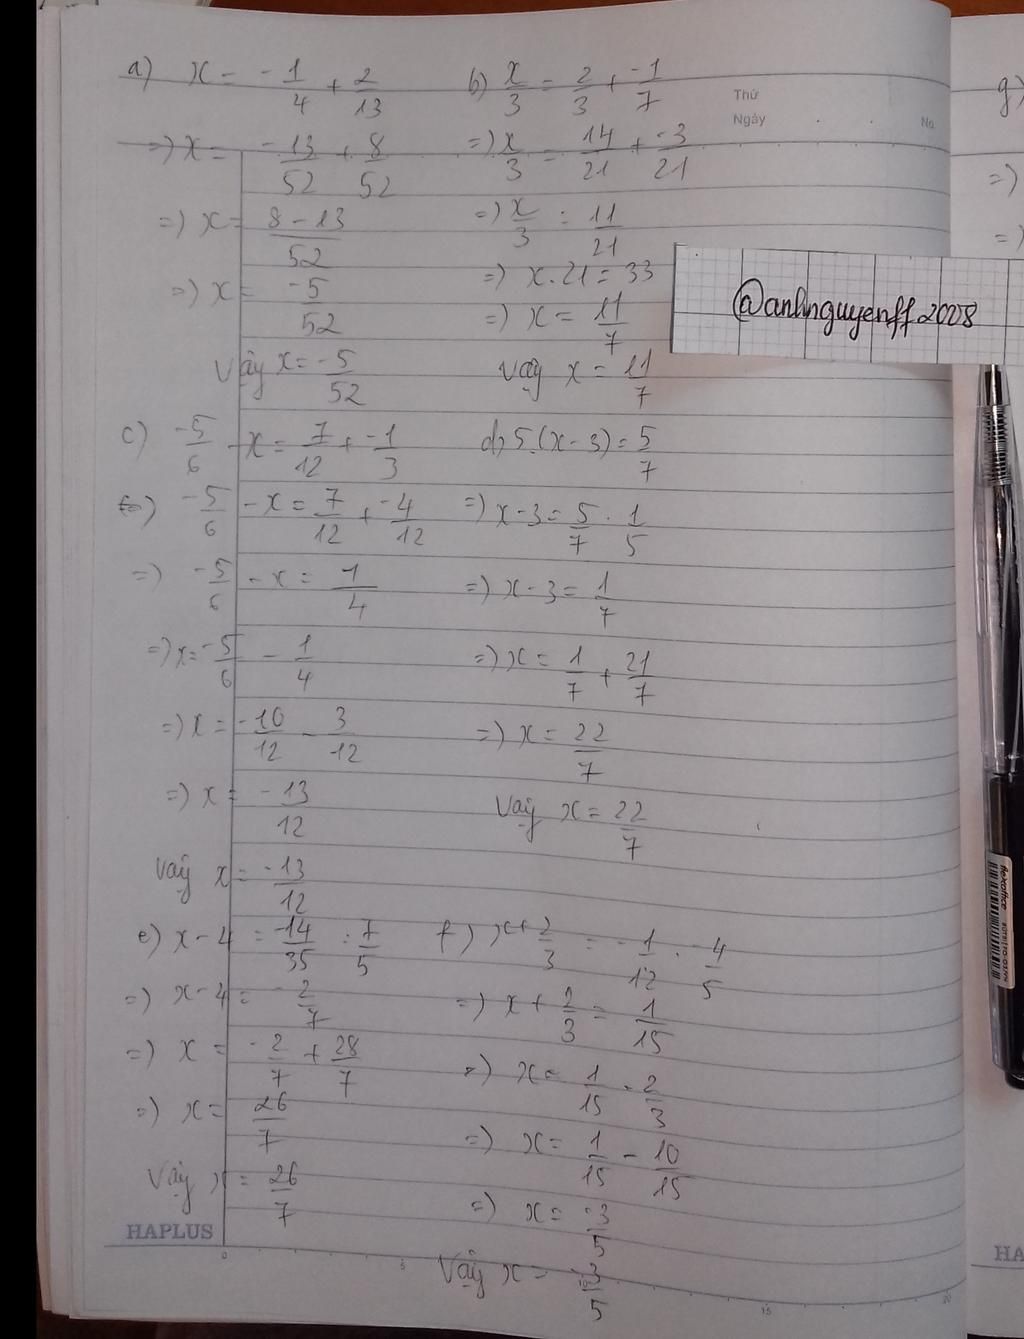 a) x = -1/4 + 2/13
=) x = -13/52 + 8/52
=) x = 8-13/52
=) x = -5/52
Vậy x = -5/52
b) x/3 = 2/3 + -1/7
=) x/3 = 14/21 + -3/21
=) x/3 = 11/21
=) x.21 = 33
=) x = 11/7
Vậy x = 11/7
Thứ
Ngày
No
@anhnguyenff2008
c) -5/6 - x = 7/12 + -1/3
=) -5/6 - x = 7/12 + -4/12
=) -5/6 - x = 1/4
=) x = -5/6 - 1/4
=) x = -10/12 - 3/12
=) x = -13/12
Vậy x = -13/12
d) 5.(x-3) = 5/7
=) x-3 = 5/7 . 1/5
=) x-3 = 1/7
=) x = 1/7 + 21/7
=) x = 22/7
Vậy x = 22/7
e) x-4 = -14/35 : 7/5
=) x-4 = -2/7
=) x = -2/7 + 28/7
=) x = 26/7
Vậy x = 26/7
f) x + 2/3 = -1/12 . -4/5
=) x + 2/3 = 1/15
=) x = 1/15 - 2/3
=) x = 1/15 - 10/15
=) x = -3/5
Vậy x = -3/5
g)
=)
=)
HAPLUS
HA
0
5
10
15
20
flexoffice